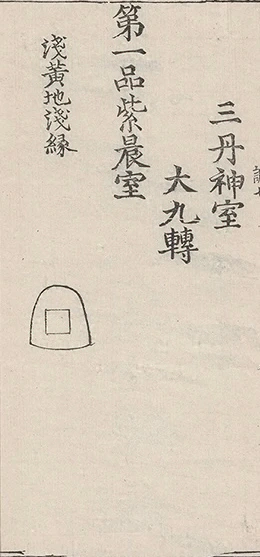 三丹神室
大九轉
第一品紫晨室
淺黃地淺緣